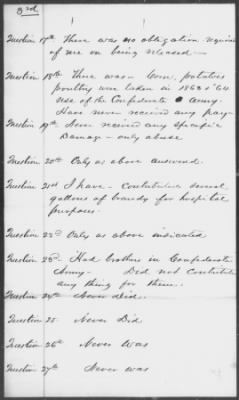 3rd
Question 17th There was no obligation required
of me on being released —
Question 18th There was — Corn, potatoes
poultry were taken in 1863 & '64
use of the Confederate Army.
Have never received any pay
Question 19th Never received any specific
Damage — only abuse
Question 20th Only as above answered.
Question 21st I have — contributed several
gallons of brandy for hospital
purposes.
Question 22d Only as above indicated
Question 23d Had brothers in Confederate
Army — Did not contribute
any thing for them.
Question 24th Never did.
Question 25 Never Did
Question 26th Never Was
Question 27th Never was